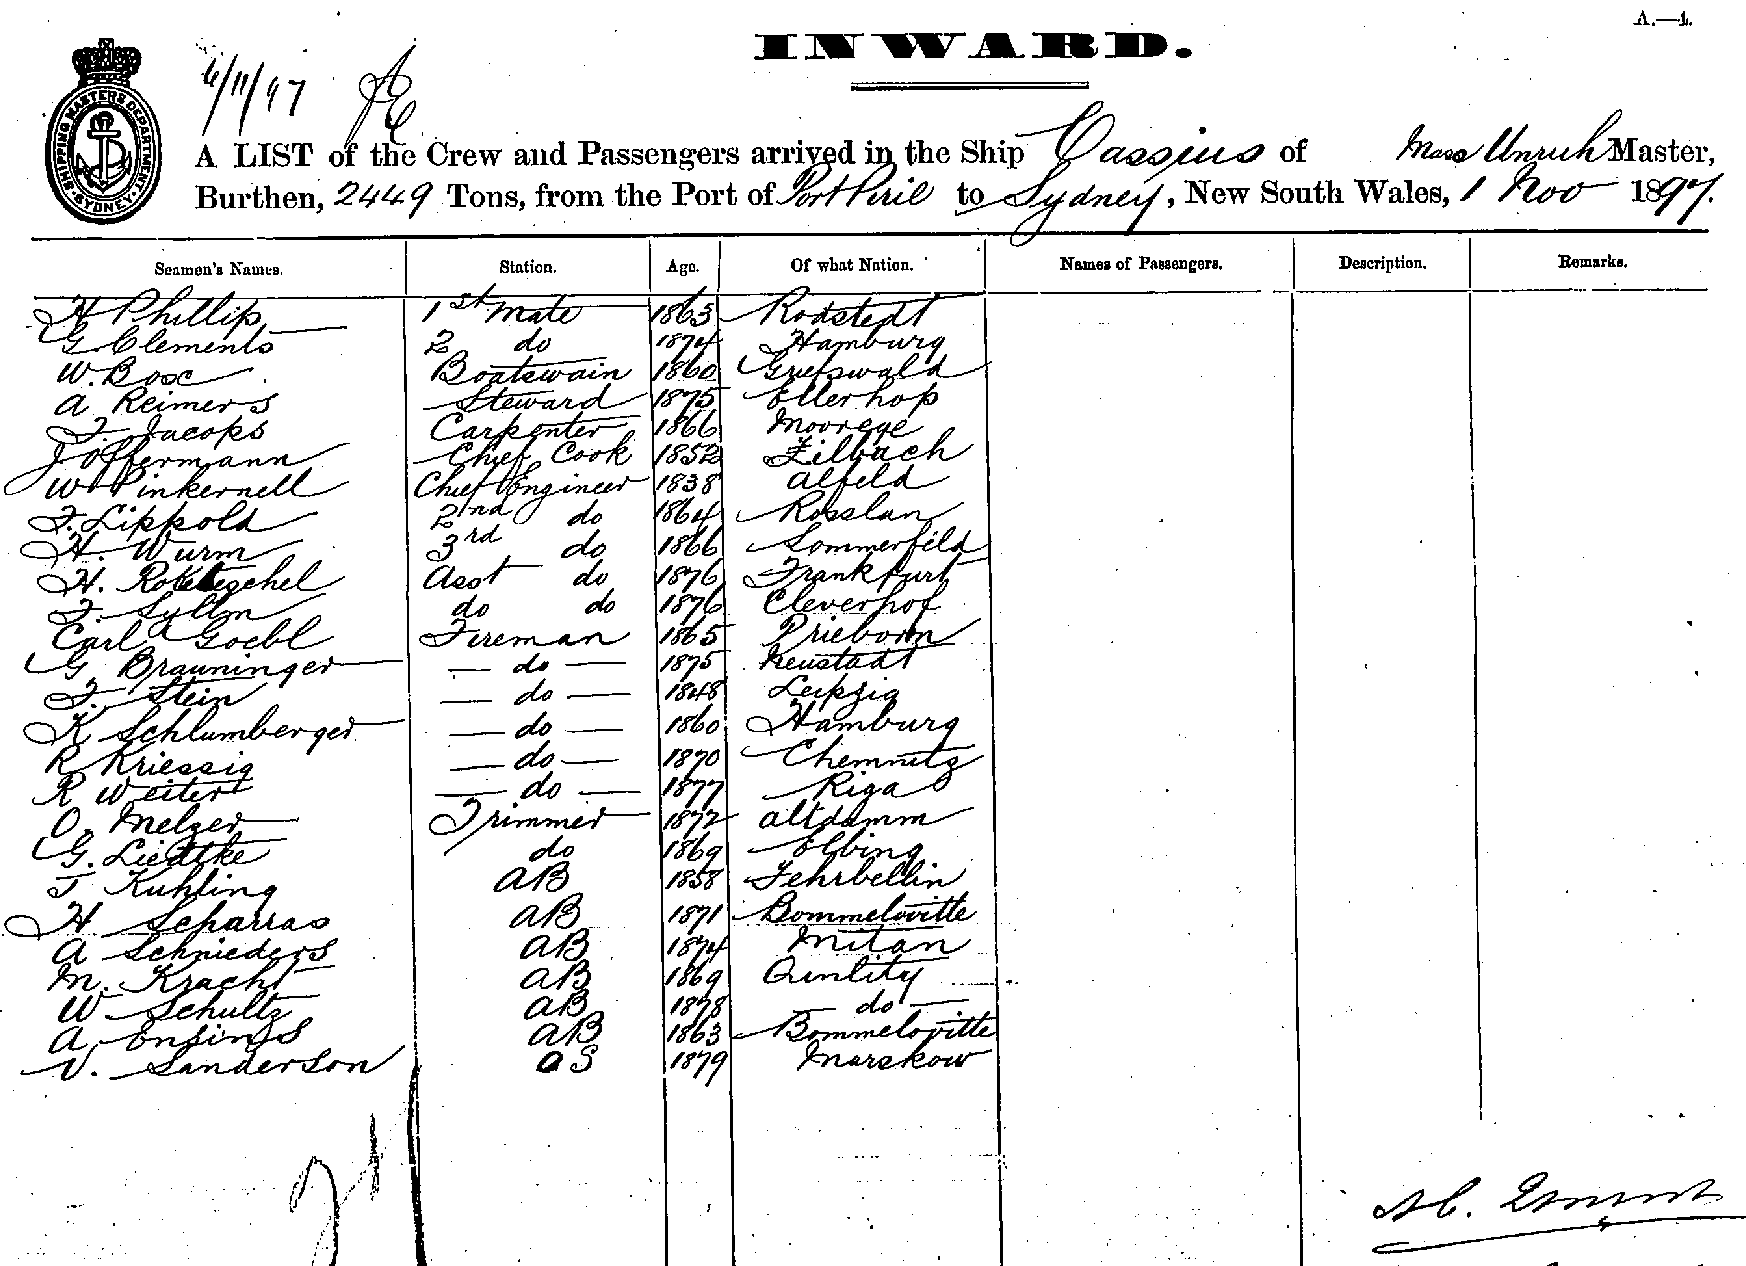 A.—1.
INWARD.
6/11/97
SHIPPING MASTERS DEPARTMENT SYDNEY
A LIST of the Crew and Passengers arrived in the Ship Cassius of Unruh Master,
Burthen, 2449 Tons, from the Port of Port Pirie to Sydney, New South Wales, 1 Nov 1897.
Seamen's Names. Station. Age. Of what Nation. Names of Passengers. Description. Remarks.
H Phillip 1st Mate 1863 Rodstedt
G Clements 2 do 1874 Hamburg
W. Bose Boatswain 1860 Greifswald
A Reimers Steward 1875 Ellerhop
F. Jacops Carpenter 1866 Moorege
J Offermann Chief Cook 1852 Filbach
W Pinkernell Chief Engineer 1838 Alfeld
F. Lippold 2nd do 1864 Rosslan
H. Wurm 3rd do 1866 Sommerfeld
H. Asst do 1876 Frankfurt
F. Syllm do do 1876 Cleverhof
Carl Goebl Fireman 1865 Prieborn
G Brauninger — do — 1875 Neustadt
F. Stein — do — 1848 Leipzig
K Schlumberger — do — 1860 Hamburg
R Kriessig — do — 1870 Chemnitz
R Weitert — do — 1877 Riga
O. Melzer Trimmer 1872 Altdamm
G. Liedtke do 1869 Elbing
T Kuhling AB 1858 Fehrbellin
H Scharras AB 1871 Bommelovitte
A Schnieders AB 1874 Mitan
M. Kracht AB 1869
W Schultz AB 1878 — do —
A. Ensings AB 1863 Bommelovitte
V. Sanderson OS 1879 Marskow